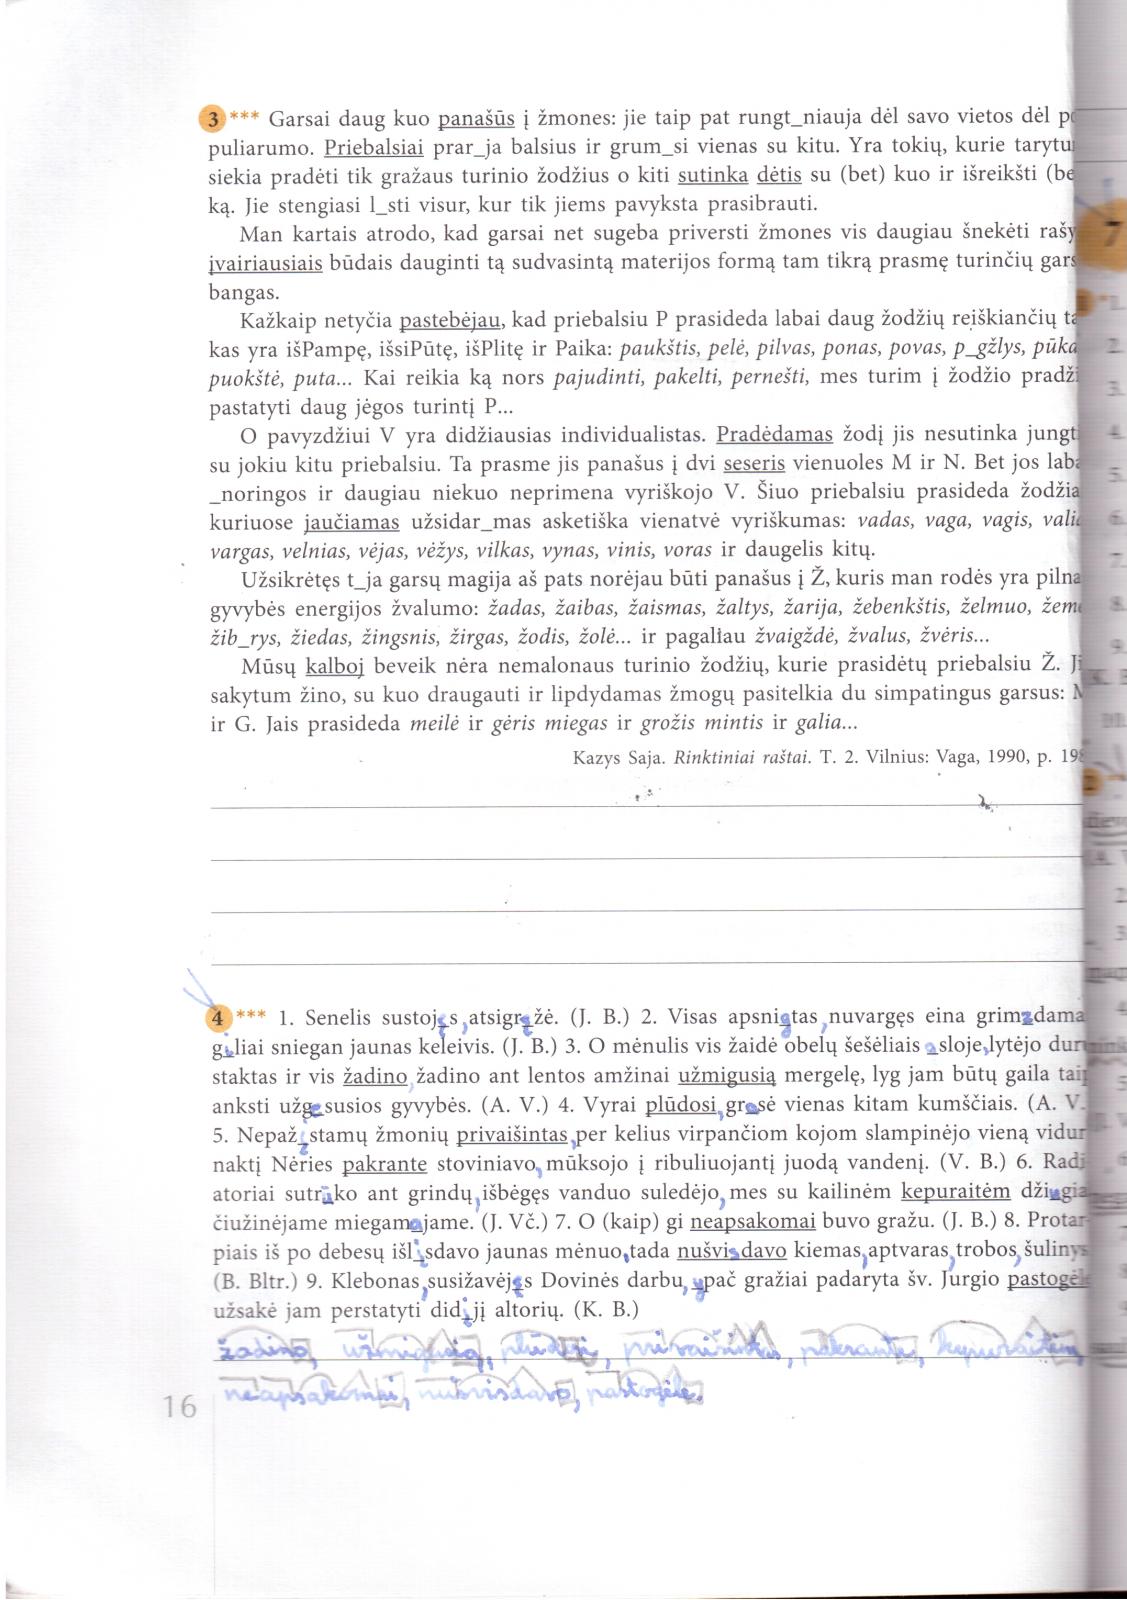 3 *** Garsai daug kuo panašūs į žmones: jie taip pat rungt_niauja dėl savo vietos dėl po
puliarumo. Priebalsiai prar_ja balsius ir grum_si vienas su kitu. Yra tokių, kurie tarytu
siekia pradėti tik gražaus turinio žodžius o kiti sutinka dėtis su (bet) kuo ir išreikšti (be
ką. Jie stengiasi l_sti visur, kur tik jiems pavyksta prasibrauti.
Man kartais atrodo, kad garsai net sugeba priversti žmones vis daugiau šnekėti rašy
įvairiausiais būdais dauginti tą sudvasintą materijos formą tam tikrą prasmę turinčių gars
bangas.
Kažkaip netyčia pastebėjau, kad priebalsiu P prasideda labai daug žodžių reiškiančių ta
kas yra išPampę, išsiPūtę, išPlitę ir Paika: paukštis, pelė, pilvas, ponas, povas, p_gžlys, pūka
puokštė, puta... Kai reikia ką nors pajudinti, pakelti, pernešti, mes turim į žodžio pradži
pastatyti daug jėgos turintį P...
O pavyzdžiui V yra didžiausias individualistas. Pradėdamas žodį jis nesutinka jungti
su jokiu kitu priebalsiu. Ta prasme jis panašus į dvi seseris vienuoles M ir N. Bet jos laba
_noringos ir daugiau niekuo neprimena vyriškojo V. Šiuo priebalsiu prasideda žodžia
kuriuose jaučiamas užsidar_mas asketiška vienatvė vyriškumas: vadas, vaga, vagis, valia
vargas, velnias, vėjas, vėžys, vilkas, vynas, vinis, voras ir daugelis kitų.
Užsikrėtęs t_ja garsų magija aš pats norėjau būti panašus į Ž, kuris man rodės yra pilna
gyvybės energijos žvalumo: žadas, žaibas, žaismas, žaltys, žarija, žebenkštis, želmuo, žemė
žib_rys, žiedas, žingsnis, žirgas, žodis, žolė... ir pagaliau žvaigždė, žvalus, žvėris...
Mūsų kalboj beveik nėra nemalonaus turinio žodžių, kurie prasidėtų priebalsiu Ž. Ji
sakytum žino, su kuo draugauti ir lipdydamas žmogų pasitelkia du simpatingus garsus: M
ir G. Jais prasideda meilė ir gėris miegas ir grožis mintis ir galia...
Kazys Saja. Rinktiniai raštai. T. 2. Vilnius: Vaga, 1990, p. 198
4 *** 1. Senelis sustojęs, atsigręžė. (J. B.) 2. Visas apsnigtas, nuvargęs eina grimzdama
giliai sniegan jaunas keleivis. (J. B.) 3. O mėnulis vis žaidė obelų šešėliais asloje, lytėjo dur
staktas ir vis žadino, žadino ant lentos amžinai užmigusią mergelę, lyg jam būtų gaila taip
anksti užgesusios gyvybės. (A. V.) 4. Vyrai plūdosi, grasė vienas kitam kumščiais. (A. V.
5. Nepažįstamų žmonių privaišintas, per kelius virpančiom kojom slampinėjo vieną vidur
naktį Nėries pakrante stoviniavo, mūksojo į ribuliuojantį juodą vandenį. (V. B.) 6. Radi
atoriai sutrūko ant grindų, išbėgęs vanduo suledėjo, mes su kailinėm kepuraitėm džiugia
čiužinėjame miegamajame. (J. Vč.) 7. O (kaip) gi neapsakomai buvo gražu. (J. B.) 8. Protar
piais iš po debesų išlįsdavo jaunas mėnuo, tada nušvisdavo kiemas, aptvaras, trobos, šulinys
(B. Bltr.) 9. Klebonas, susižavėjęs Dovinės darbu, ypač gražiai padaryta šv. Jurgio pastogėle
užsakė jam perstatyti didįjį altorių. (K. B.)
žadino, užmigusią, plūdosi, privaišintas, pakrante, kepuraitėm,
neapsakomai, nušvisdavo, pastogėle.
16